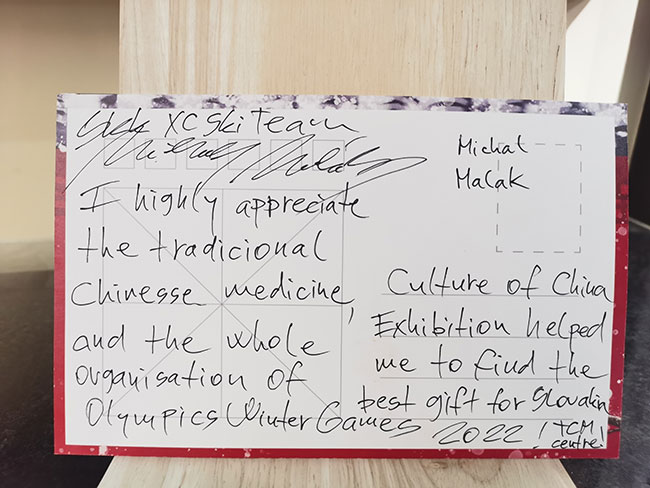 XC Ski Team
Michal
Malak
I highly appreciate
the tradicional
Chinesse medicine,
and the whole
organisation of
Olympics Winter Games 2022
Culture of China
Exhibition helped
me to find the
best gift for Slovakia
! TCM
centre!